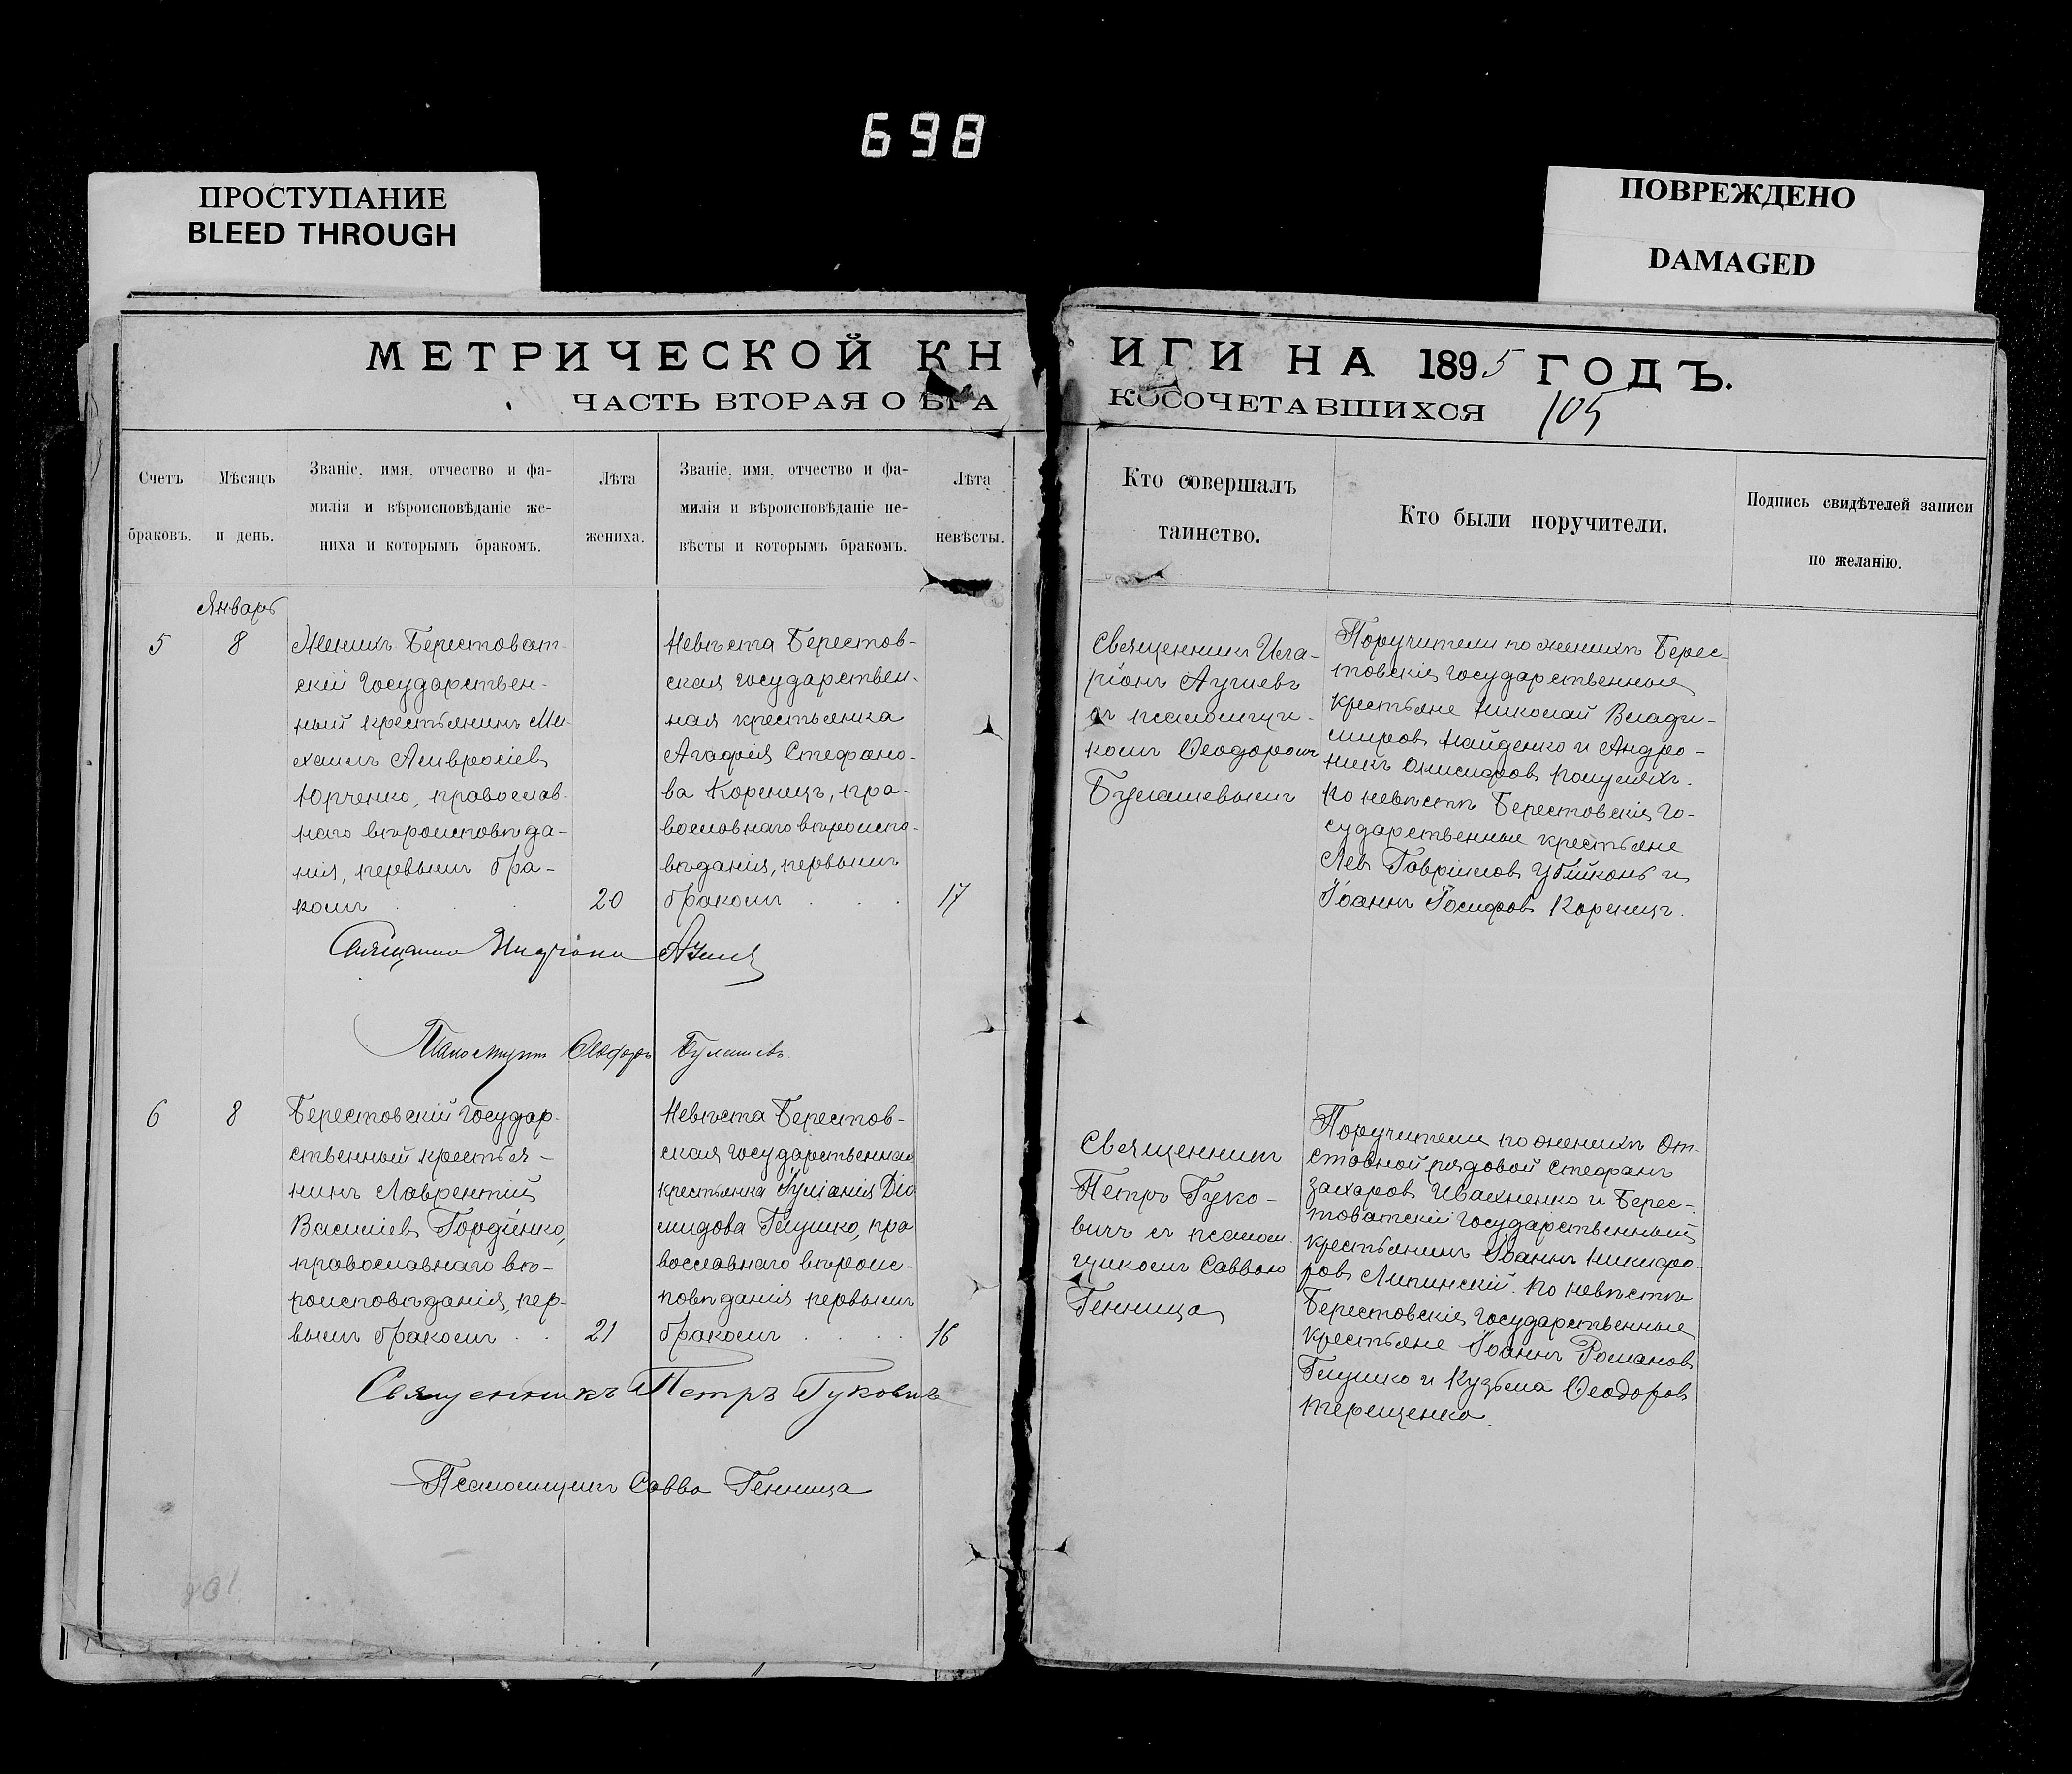 698
ПРОСТУПАНИЕ
BLEED THROUGH
ПОВРЕЖДЕНО
DAMAGED
МЕТРИЧЕСКОЙ КНИГИ НА 1895 ГОДЪ.
ЧАСТЬ ВТОРАЯ О БРАКОСОЧЕТАВШИХСЯ
105
Счетъ
браковъ.
Мѣсяцъ
и день.
Званіе, имя, отчество и фа-
милія и вѣроисповѣданіе же-
ниха и которымъ бракомъ.
Лѣта
жениха.
Званіе, имя, отчество и фа-
милія и вѣроисповѣданіе не-
вѣсты и которымъ бракомъ.
Лѣта
невѣсты.
Кто совершалъ
таинство.
Кто были поручители.
Подпись свидѣтелей записи
по желанію.
Январь
5
8
Женихъ Берестоват-
скій Государствен-
ный крестьянинъ Ми-
хаилъ Амвросіев
Юрченко, православ-
наго вѣроисповѣда-
нія, первымъ бра-
комъ
20
Невѣста Берестов-
ская государствен-
ная крестьянка
Агафія Стефано-
ва Корницъ, пра-
вославнаго вѣроиспо-
вѣданія, первымъ
бракомъ
17
Священникъ Ила-
ріонъ
съ псаломщи-
комъ Ѳеодоромъ
Булашевымъ
Поручители по женихѣ Берес-
товскія Государственныя
крестьяне Николай Влади-
миров Найденко и Андро-
никъ Онисифоров
По невѣстѣ Берестовскія Го-
сударственные крестьяне
Лев Гавріилов и
Іоаннъ Іосифов Корницъ.
Священникъ Иларіонъ
Псаломщикъ Ѳеодоръ Булашевъ
6
8
Берестовскій Государ-
ственный крестья-
нинъ Лаврентій
Василіев Гордіенко,
православнаго вѣ-
роисповѣданія, пер-
вымъ бракомъ
21
Невѣста Берестов-
ская государственная
крестьянка Іуліанія Діо
мидова Глушко, пра
вославнаго вѣроис-
повѣданія первымъ
бракомъ
16
Священникъ
Петръ Гуко-
вичъ съ псалом-
щикомъ Саввою
Генница
Поручители по женихѣ От-
ставной рядовой Стефанъ
Захаров Ивахненко и Берес-
товатскій Государственный
крестьянинъ Іоаннъ Никифо-
ров Липинскій. По невѣстѣ
Берестовскіе Государственныя
крестьяне Іоаннъ Романов
Глушко и Кузьма Ѳеодоров
Терещенко.
Священникъ Петръ Гуковичъ
Псаломщикъ Савва Генница